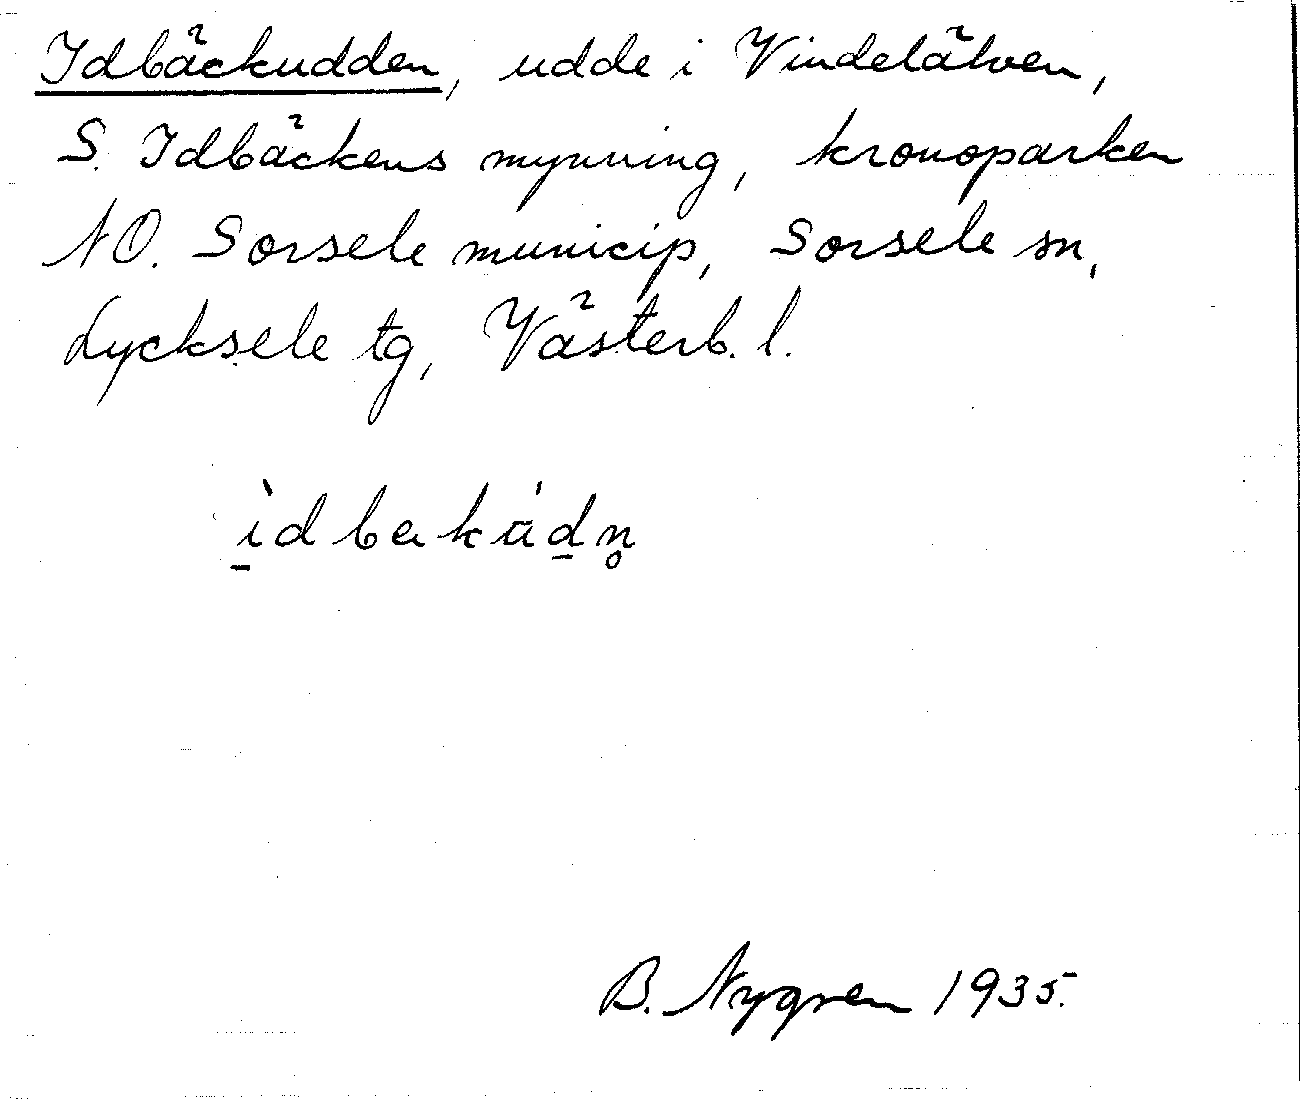 Idbäckudden, udde i Vindelälven,
S. Idbäckens mynning, kronoparken
NO. Sorsele municip, Sorsele sn,
Lycksele tg, Västerb. l.
ì̱dbakúḏn̥
B. Nygren 1935.